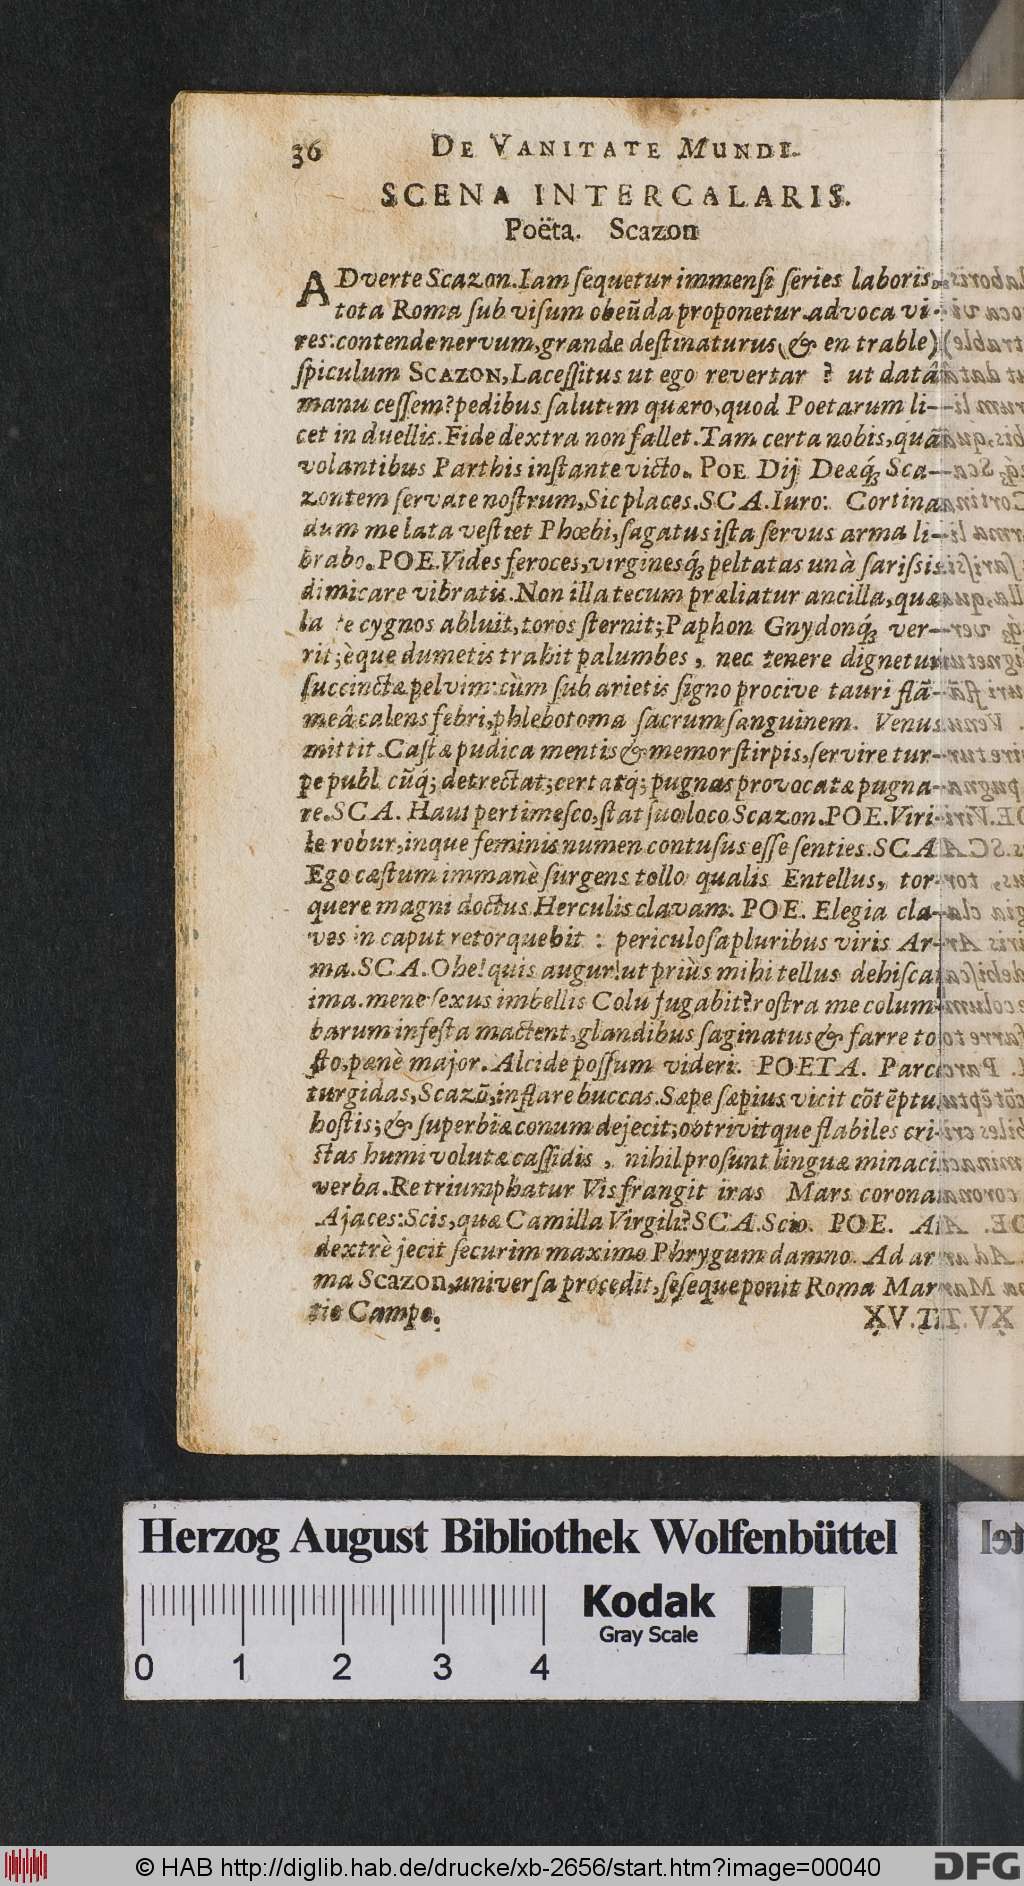 36 DE VANITATE MUNDI.
SCENA INTERCALARIS.
Poëta. Scazon
ADverte Scazon. Iam sequetur immensi series laboris.
tota Roma sub visum obeūda proponetur. advoca vi-
res: contende nervum, grande destinaturus (& en trable)
spiculum SCAZON, Lacessitus ut ego revertar ? ut datâ
manu cessem? pedibus salutem quæro, quod Poetarum li-
cet in duellis. Fide dextra non fallet. Tam certa nobis, quā
volantibus Parthis instante victo. POE Dij Deæq́; Sca-
zontem servate nostrum, Sic places. SCA. Iuro: Cortina
dum me lata vestiet Phœbi, sagatus ista servus arma li-
brabo. POE. Vides feroces, virginesq́; peltatas unà sarissis
dimicare vibratis. Non illa tecum præliatur ancilla, quæ
la te cygnos abluit, toros sternit; Paphon Gnydonq́; ver-
rit; èque dumetis trahit palumbes, nec tenere dignetur
succinctæ pelvim: cùm sub arietis signo procive tauri flā-
meâ calens febri, phlebotoma sacrum sanguinem. Venus
mittit. Castæ pudica mentis & memor stirpis, servire tur-
pe publ cūq́; detrectat; certatq́; pugnas provocatæ pugna-
re. SCA. Haut pertimesco, stat suo loco Scazon. POE. Viri-
le robur, inque feminis numen contusus esse senties. SCA
Ego cæstum immanè surgens tollo qualis Entellus, tor-
quere magni doctus Herculis clavam. POE. Elegia cla-
ves in caput retorquebit : periculosa pluribus viris Ar-
ma. SCA. Ohe! quis augur! ut priùs mihi tellus dehisca
ima. mene sexus imbellis Colu fugabit? rostra me colum-
barum infesta mactent, glandibus saginatus & farre to
sto, penè major. Alcide possum videri. POETA. Parce
turgidas, Scazō, inflare buccas. Sæpe sæpius vicit cōtēptu
hostis; & superbiæ conum dejecit; obtrivitque flabiles cri-
stas humi volutæ cassidis, nihil prosunt linguæ minaci
verba. Re triumphatur Vis frangit iras Mars corona
Ajaces: Scis, quæ Camilla Virgili? SCA. Scio. POE. A
dextrè jecit securim maximo Phrygum damno. Ad ar
ma Scazon, universa procedit, seseque ponit Roma Mar
tio Campo.
XV. T
Herzog August Bibliothek Wolfenbüttel
Kodak
Gray Scale
0 1 2 3 4
© HAB http://diglib.hab.de/drucke/xb-2656/start.htm?image=00040
DFG